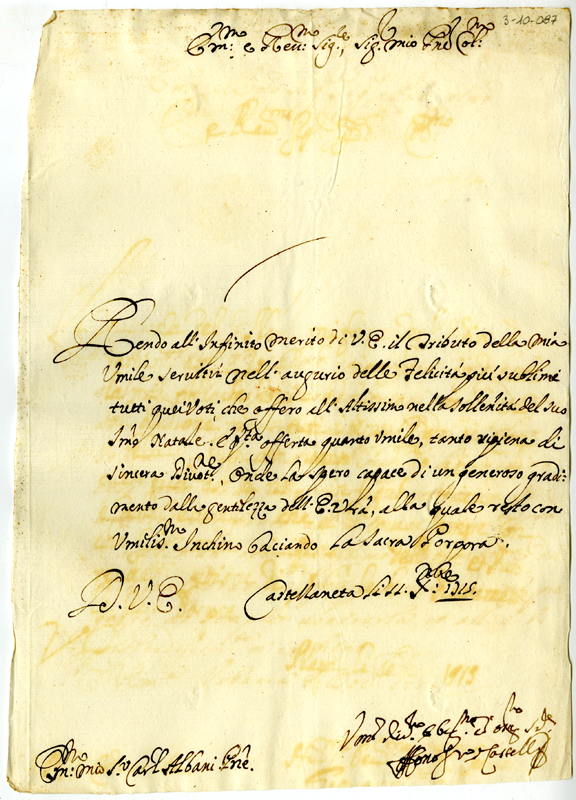 3-10-087
Em:mo e Rev:mo Sig:re, Sig:r mio P'ne Col:mo
Rendo all' Infinito merito di V. E. il Tributo della mia
Umile servitù nell' augurio delle Felicità più sublimi
tutti quei Voti, che offero all' Altissimo nella sollenità del suo
SSmo Natale. E' q:sta offerta quanto Umile, tanto ripiena di
sincera Divot:ne, Onde La spero capace di un generoso gradi-
mento dalla gentilezza dell' E. Vra, alla quale resto con
Umiliss:mo Inchino baciando La Sacra Porpora.
D. V. E. Castellaneta li 11. Xbre: 1715.
Em:mo mio S:r Card Albani P'ne.
Um:o